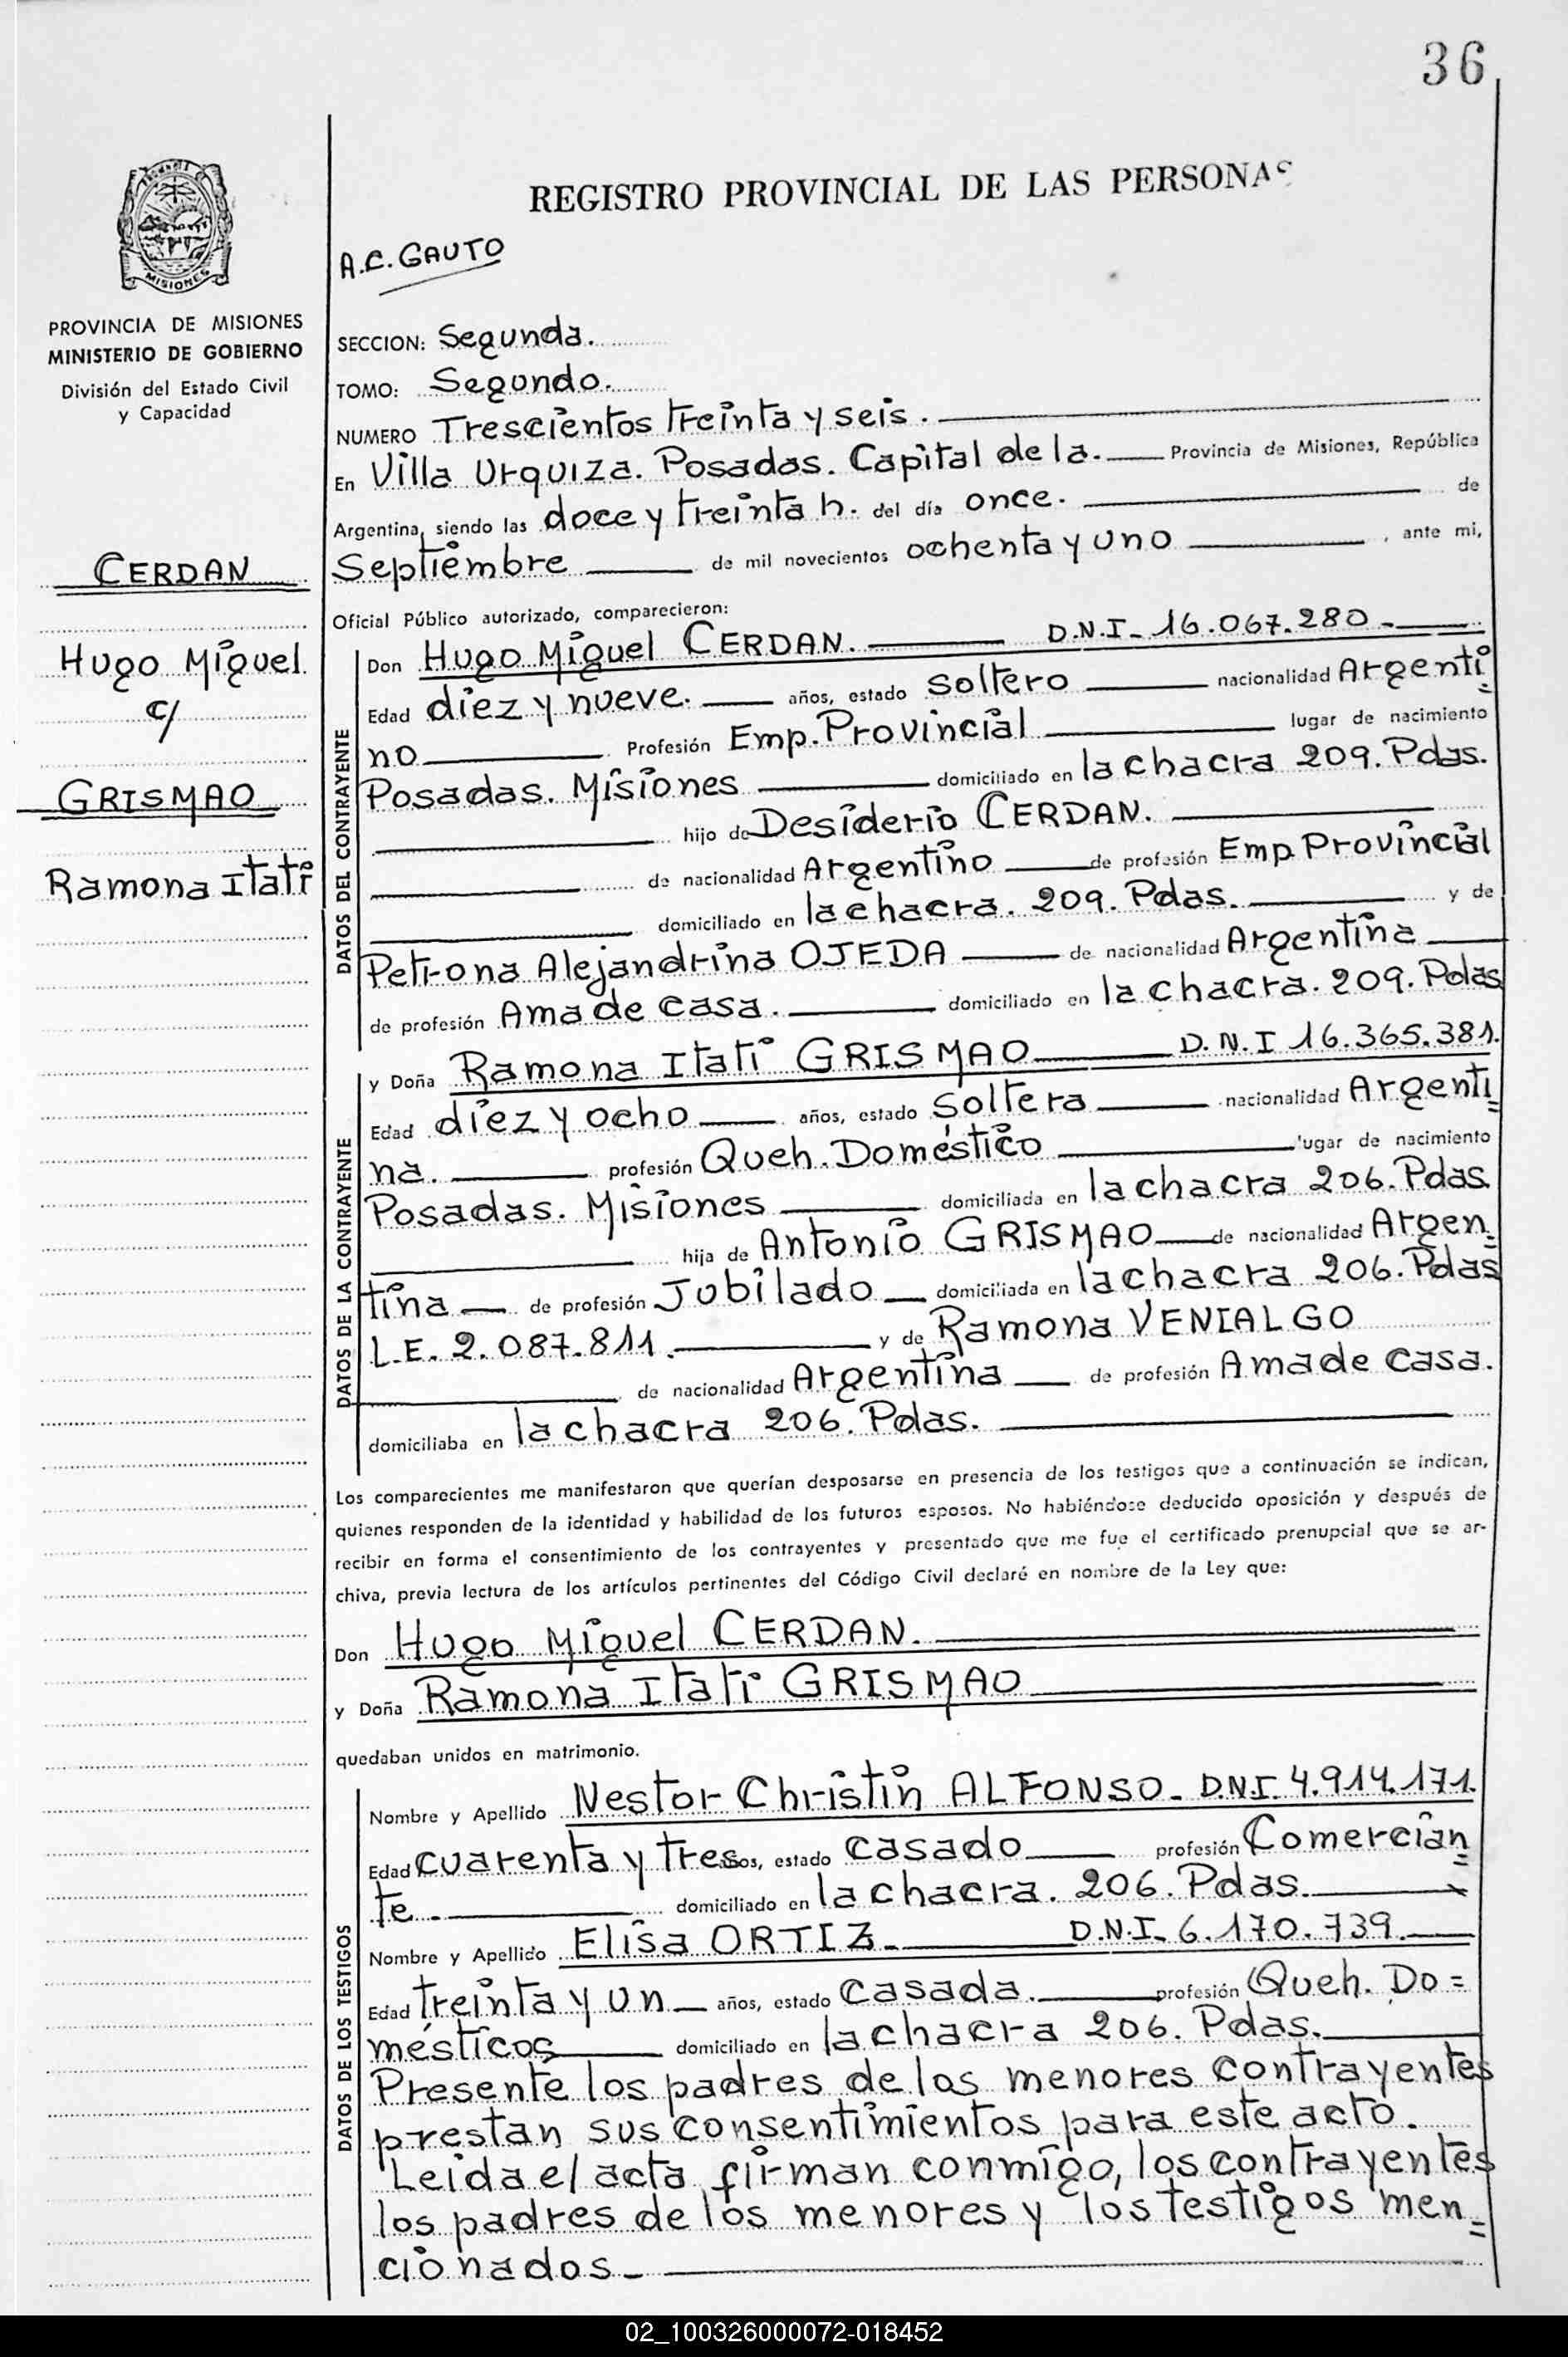 36
REGISTRO PROVINCIAL DE LAS PERSONAS
A.C. GAUTO
MISIONES
PROVINCIA DE MISIONES
MINISTERIO DE GOBIERNO
División del Estado Civil
y Capacidad
CERDAN
Hugo Miguel
c/
GRISMAO
Ramona Itatí
SECCION: Segunda.
TOMO: Segundo.
NUMERO Trescientos treinta y seis.
En Villa Urquiza. Posadas. Capital de la. Provincia de Misiones, República
Argentina, siendo las doce y treinta h. del día once. de
Septiembre de mil novecientos ochenta y uno , ante mi,
Oficial Público autorizado, comparecieron:
DATOS DEL CONTRAYENTE
Don Hugo Miguel CERDAN. D.N.I- 16.067.280-
Edad diez y nueve. años, estado soltero nacionalidad Argenti=
no Profesión Emp. Provincial lugar de nacimiento
Posadas. Misiones domiciliado en la chacra 209. Pdas.
hijo de Desiderio CERDAN.
de nacionalidad Argentino de profesión Emp Provincial
domiciliado en la chacra. 209. Pdas. y de
Petrona Alejandrina OJEDA de nacionalidad Argentina
de profesión Ama de casa. domiciliado en la chacra. 209. Pdas
DATOS DE LA CONTRAYENTE
y Doña Ramona Itatí GRISMAO D.N.I 16.365.381.
Edad diez y ocho años, estado soltera nacionalidad Argenti=
na. profesión Queh. Doméstico lugar de nacimiento
Posadas. Misiones domiciliada en la chacra 206. Pdas.
hija de Antonio GRISMAO de nacionalidad Argen=
tina de profesión Jubilado domiciliada en la chacra 206. Pdas
L.E. 2.087.811. y de Ramona VENIALGO
de nacionalidad Argentina de profesión Ama de casa.
domiciliaba en la chacra 206. Pdas.
Los comparecientes me manifestaron que querían desposarse en presencia de los testigos que a continuación se indican,
quienes responden de la identidad y habilidad de los futuros esposos. No habiéndose deducido oposición y después de
recibir en forma el consentimiento de los contrayentes y presentado que me fue el certificado prenupcial que se ar-
chiva, previa lectura de los artículos pertinentes del Código Civil declaré en nombre de la Ley que:
Don Hugo Miguel CERDAN.
y Doña Ramona Itatí GRISMAO
quedaban unidos en matrimonio.
DATOS DE LOS TESTIGOS
Nombre y Apellido Nestor Christin ALFONSO- DNI. 4.914.171.
Edad cuarenta y tres años, estado casado profesión Comercian=
te- domiciliado en la chacra. 206. Pdas.
Nombre y Apellido Elisa ORTIZ- D.N.I- 6.170.739.
Edad treinta y un años, estado casada. profesión Queh. Do=
mésticos domiciliado en la chacra 206. Pdas.
Presente los padres de los menores contrayentes
prestan sus consentimientos para este acto.
Leida el acta firman conmigo, los contrayentes
los padres de los menores y los testigos men=
cionados-
02_100326000072-018452